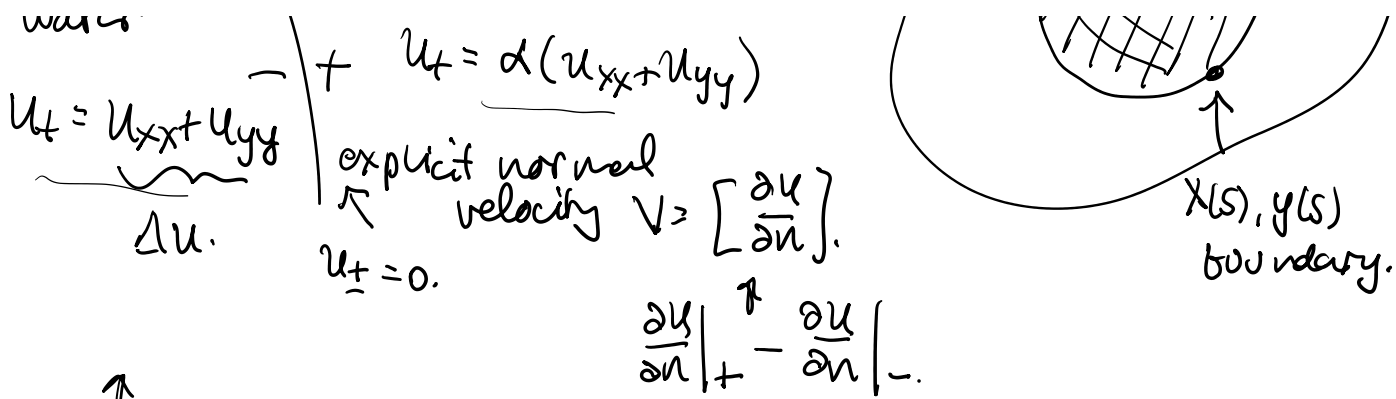 water
− | + u_t = α(u_xx + u_yy)
u_t = u_xx + u_yy
Δu.
explicit normal
velocity V = [∂u/∂n].
u_± = 0.
∂u/∂n|_+ − ∂u/∂n|_-.
x(s), y(s)
boundary.